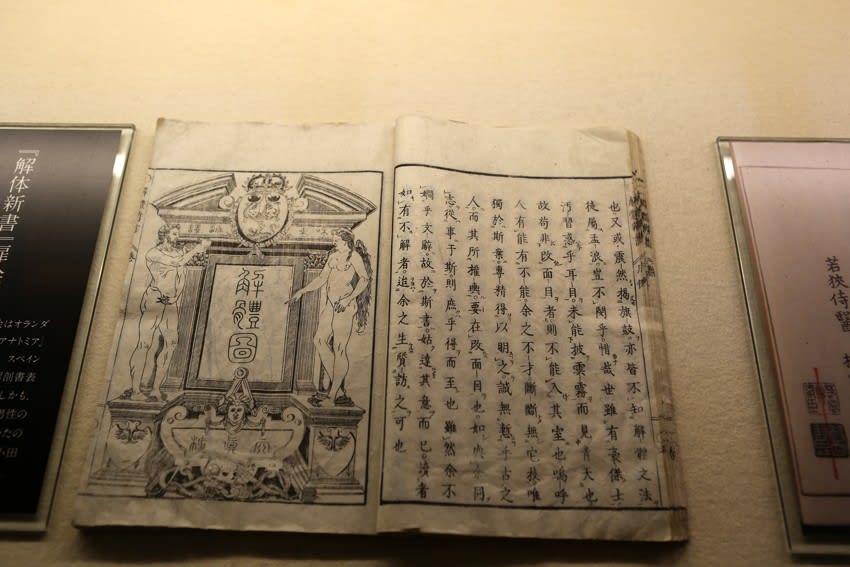 若狭侍醫
也又或震然揭旗鼓亦皆不知解體文法
徒屬孟浪豈不閔乎惜哉世雖有豪傑士
汚習惑乎耳目未能披雲霧而見青天也
故苟非改面目者則不能入其室也嗚呼
人有能有不能余之不才斷斷無它技唯
獨於斯業專精得以明之誠無慙乎古之
人而其所權輿要在改面目也如同
志從事于斯則庶乎得而至也雖然余不
嫺乎文辭故於斯書姑達其意而已讀者
如有不解者造余之生質訪之可也
解體圖
天真樓
『解体新書』扉
はオランダ
アナトミア』
スペイン
剖書表
しかも、
男性の
たの
小田